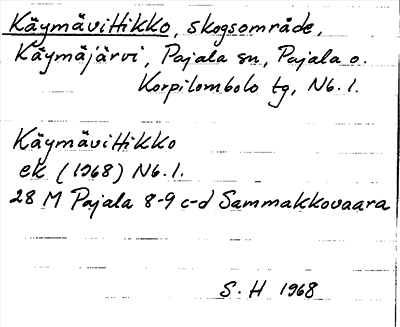 Käymävittikko, skogsområde,
Käymäjärvi, Pajala sn, Pajala o.
Korpilombolo tg, Nb. l.
Käymävittikko
ek (1968) Nb. l.
28 M Pajala 8-9 c-d Sammakkovaara
S. H 1968